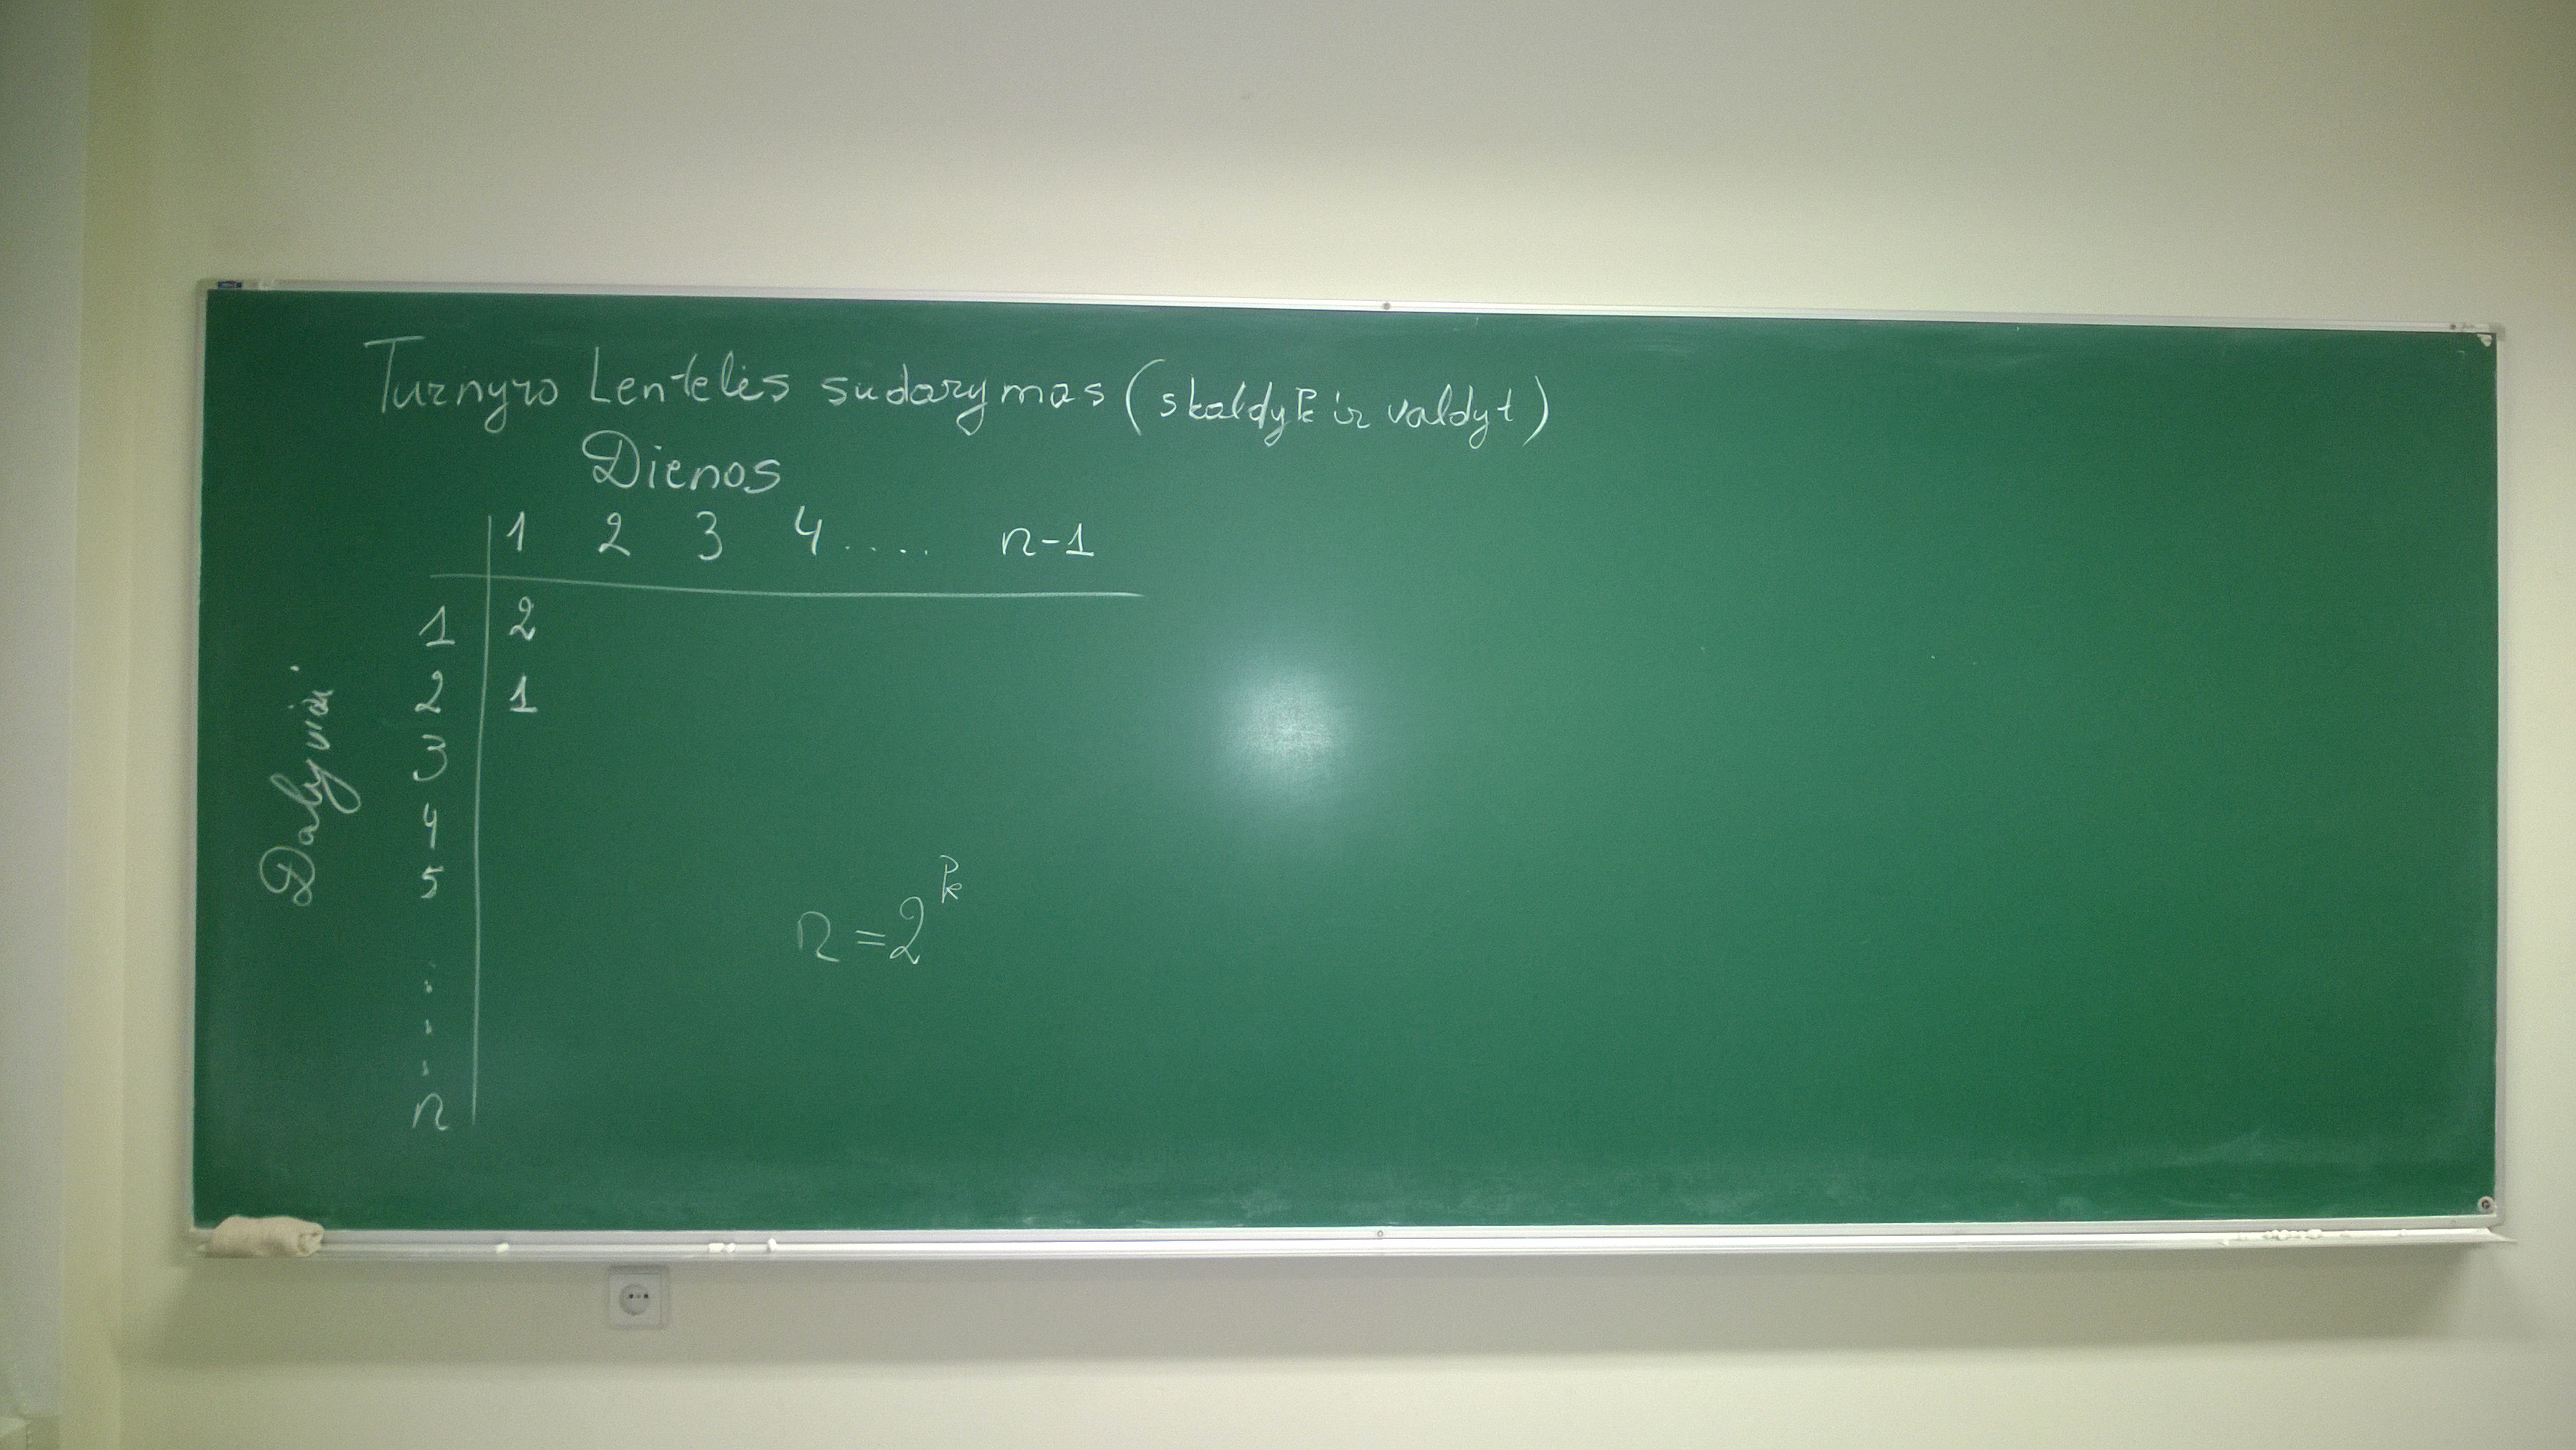 Turnyro Lentelės sudarymas (skaldyk ir valdyt)
Dienos
1 2 3 4 ..... n-1
Dalyviai
1 2
2 1
3
4
5
.
.
.
n
n = 2^k